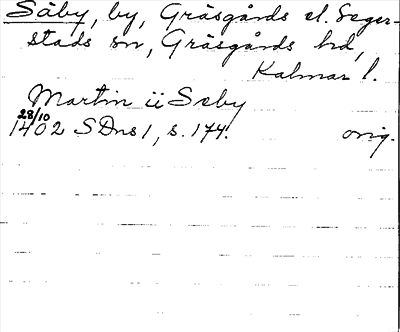 Säby, by, Gräsgårds el. Seger-
stads sn, Gräsgårds hd,
Kalmar l.
Martin ii Sæby
28/10
1402 SDns 1, s. 174. orig.